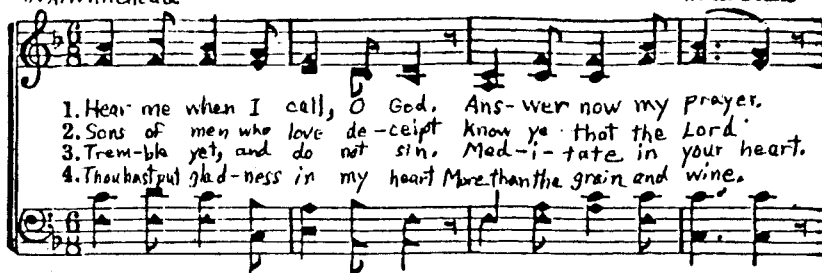 1. Hear me when I call, O God. Ans-wer now my prayer.
2. Sons of men who love de-ceipt know ye that the Lord
3. Trem-ble yet, and do not sin. Med-i-tate in your heart.
4. Thou hast put glad-ness in my heart More than the grain and wine.